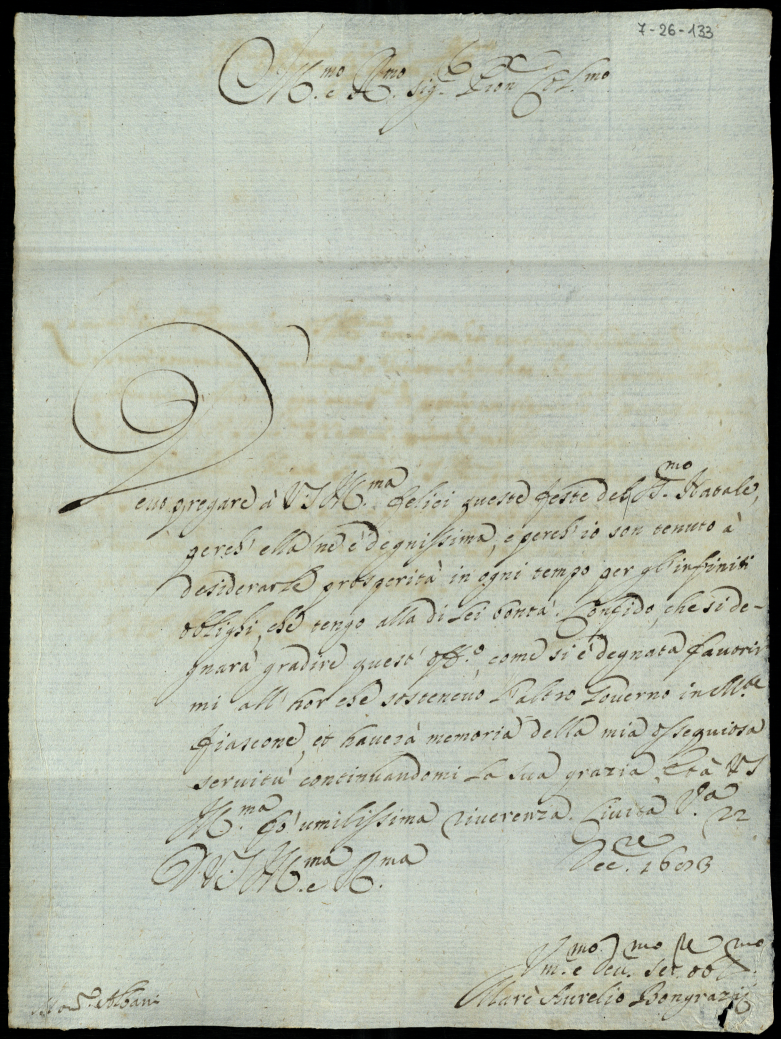 7-26-133
Ill.mo e R.mo Sig.r Pron Col.mo
Devo pregare à V. S. Ill.ma felici queste feste del S.mo Natale,
perche ella ne è degnissima, e perche io son tenuto à
desiderarle prosperità in ogni tempo per gl'infiniti
oblighi, che tengo alla di Lei bontà. Confido, che si de-
gnarà gradire quest' off.o, come si è degnata favorir
mi all' hor che sostenevo l'altro Governo in M.te
fiascone, et haverà memoria della mia ossequiosa
servitù continuandomi la sua grazia. Et à V. S.
Ill.ma fò umilissima riverenza. Civita V.a 22
D. V. S. Ill.ma e R.ma Dec.re 1693
Um.mo e Dev.mo Ser.re obl.mo
Marc' Aurelio Bongrazij
S.r Albani